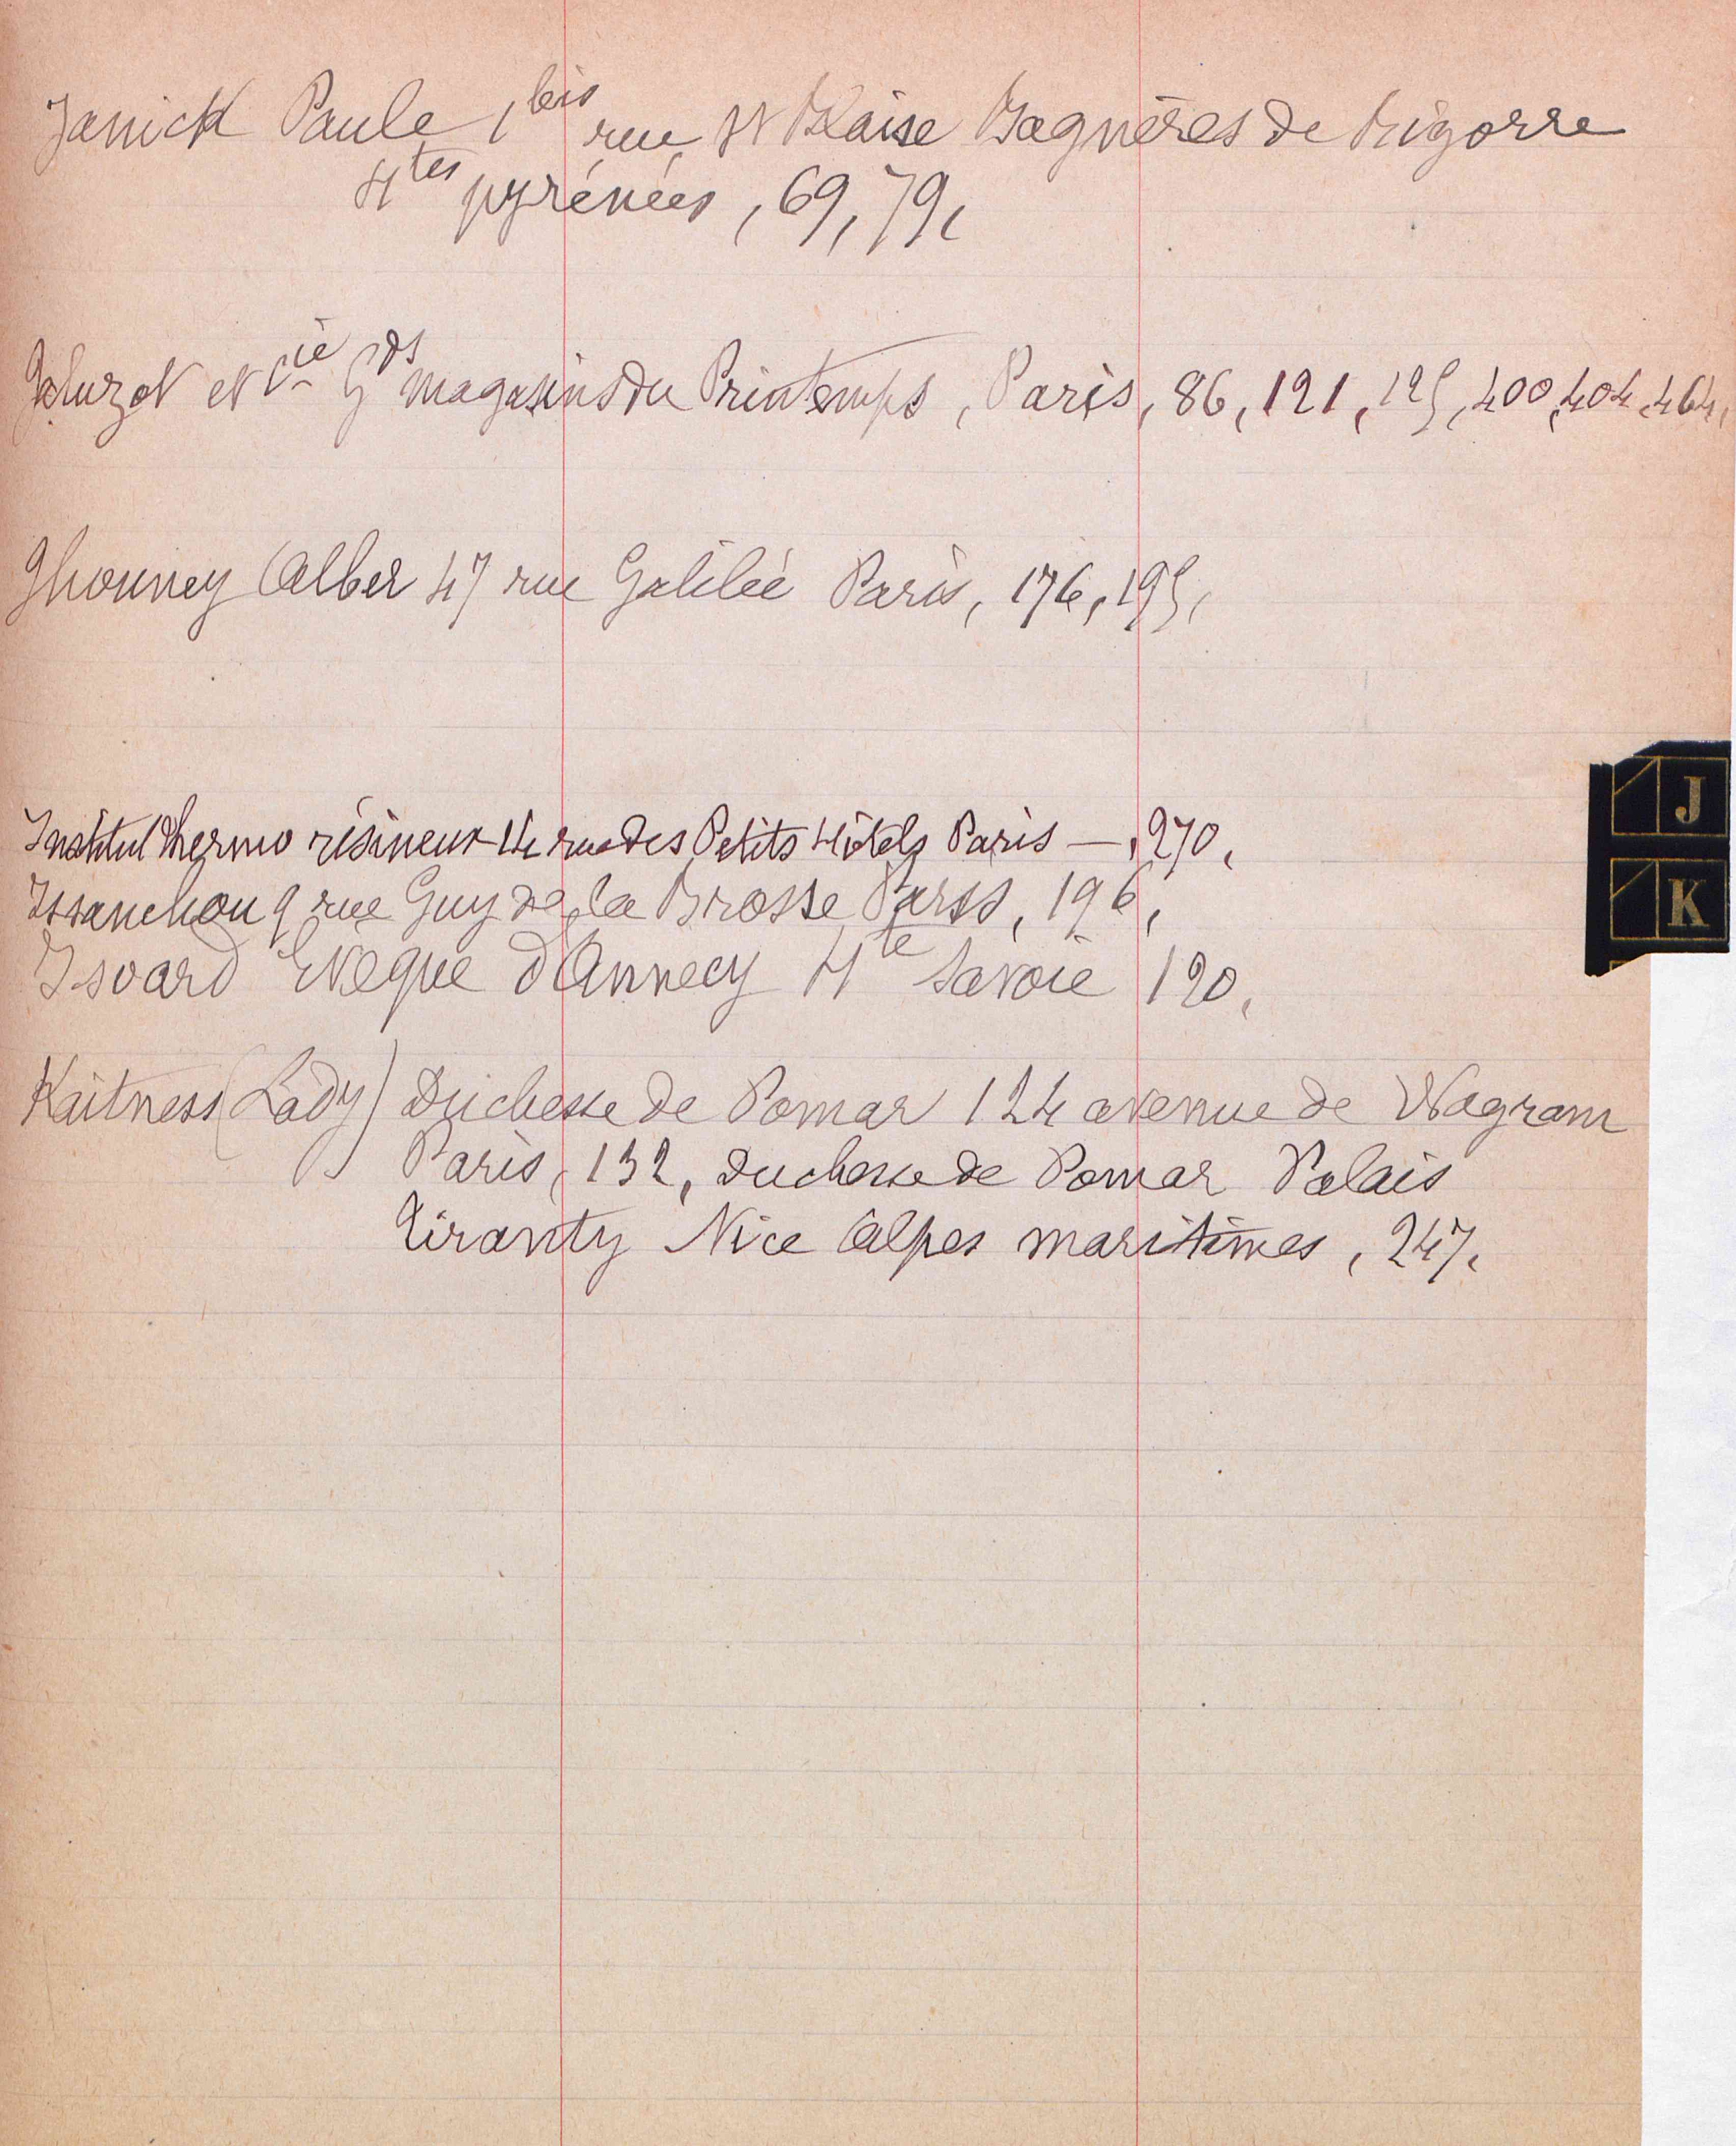 Janick Paule 1 bis rue St Blaise Bagnères de Bigorre
Htes pyrénées, 69, 79,
Jaluzot et Cie Gds magasins du Printemps, Paris, 86, 121, 125, 400, 404, 464,
Jhouney Alber 47 rue Galilée Paris, 176, 195,
J
Institut thermo résineux 14 rue des Petits Hôtels Paris — , 270,
Issanchou 9 rue Guy de la Brosse Paris, 196,
K
Isoard Evêque d'Annecy Hte Savoie 120,
Kaitness (Lady) Duchesse de Pomar 124 avenue de Wagram
Paris, 132, duchesse de Pomar Palais
Tiranty Nice Alpes maritimes, 247,